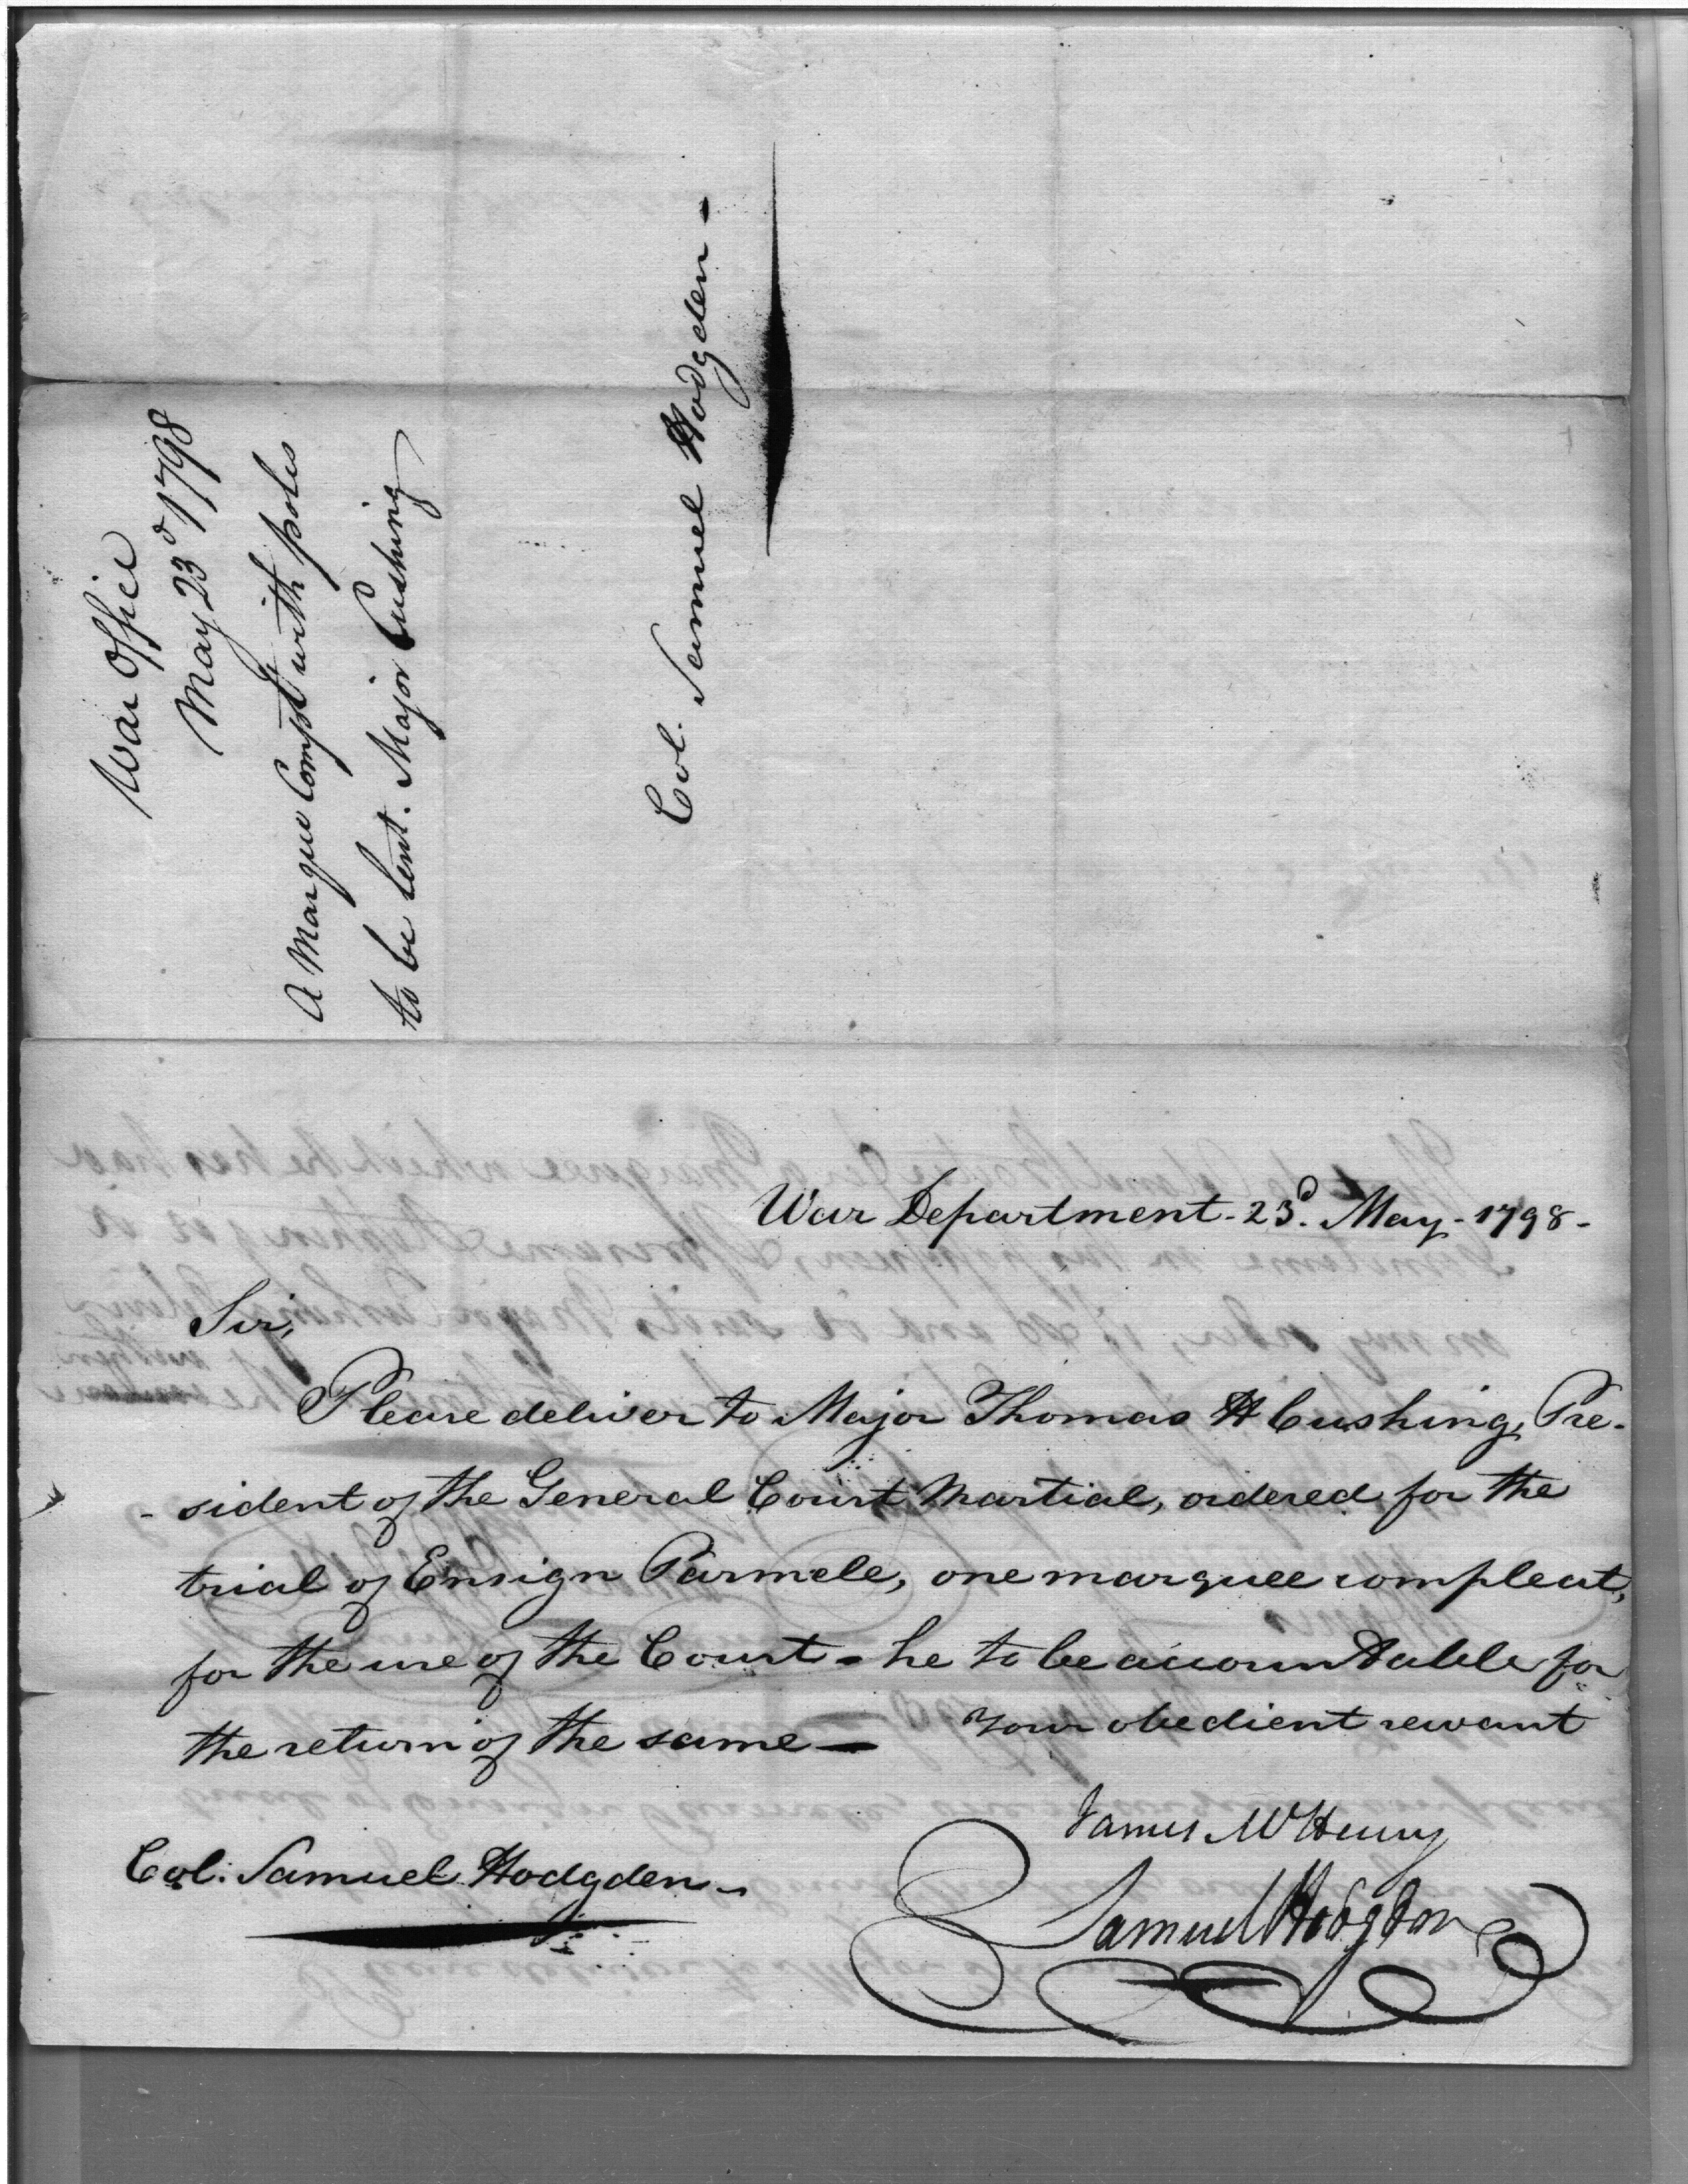 War Office
May 23d 1798
A Marque Complt with poles
to be lent. Major Cushing
Col. Samuel Hodgden -
War Department - 23d. May - 1798 -
Sir,
Please deliver to Major Thomas H Cushing, Pre-
- sident of the General Court Martial, ordered for the
trial of Ensign Parmele, one marquee compleat,
for the use of the Court - he to be accountable for
the return of the same — Your obedient servant
James McHenry
Col: Samuel Hodgden -
Samuel Hodgdon